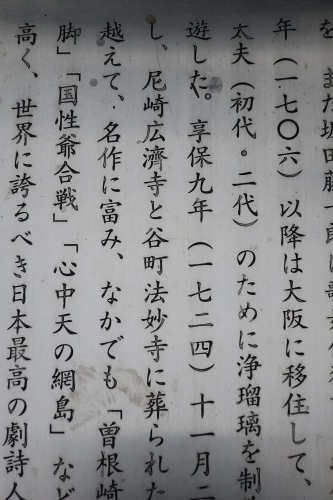 を、また坂田藤十郎は
年(一七〇六)以降は大阪に移住して、
太夫(初代・二代)のために浄瑠璃を制
遊した。享保九年(一七二四)十一月二
し、尼崎広濟寺と谷町法妙寺に葬られた
越えて、名作に富み、なかでも「曽根崎
脚」「国性爺合戦」「心中天の網島」など
高く、世界に誇るべき日本最高の劇詩人